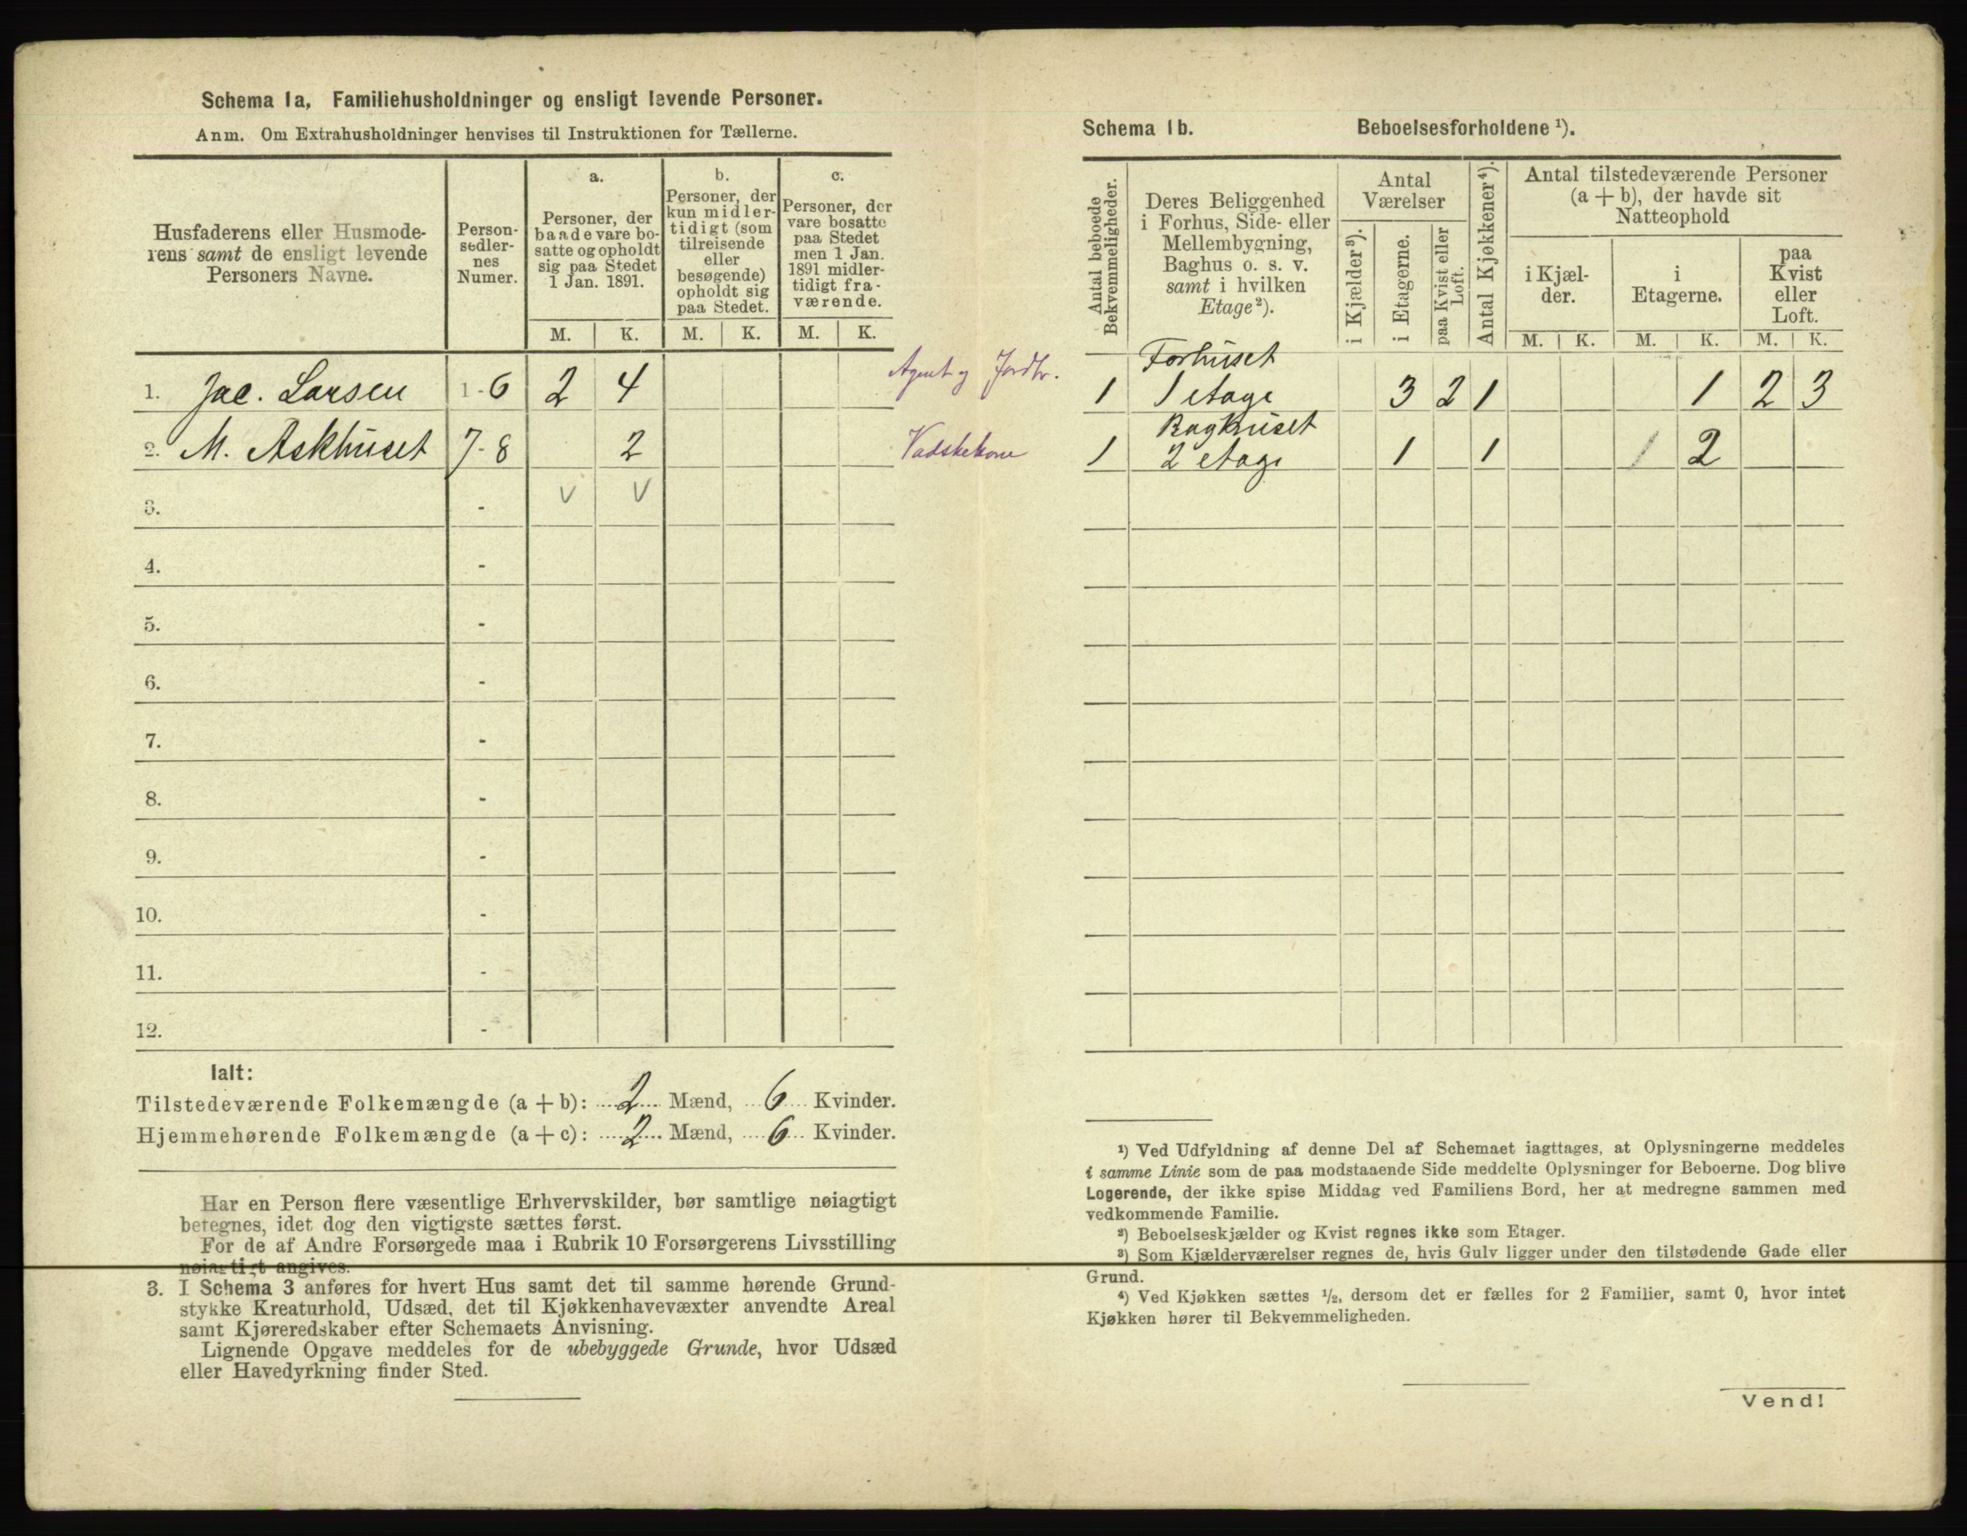 Schema 1a, Familiehusholdninger og ensligt levende Personer.
Anm. Om Extrahusholdninger henvises til Instruktionen for Tællerne.
Husfaderens eller Husmode-
rens samt de ensligt levende
Personers Navne.
Person-
sedler-
nes
Numer.
a.
Personer, der
baade vare bo-
satte og opholdt
sig paa Stedet
1 Jan. 1891.
b.
Personer, der
kun midler-
tidigt (som
tilreisende
eller
besøgende)
opholdt sig
paa Stedet.
c.
Personer, der
vare bosatte
paa Stedet
men 1 Jan.
1891 midler-
tidigt fra-
værende.
M. K. M. K. M. K.
1. Jac. Larsen 1-6 2 4 Agent og Jordbr.
2. M. Askhuset 7-8 2
3. - v v
4. -
5. -
6. -
7. -
8. -
9. -
10. -
11. -
12. -
Ialt:
Tilstedeværende Folkemængde (a + b): 2 Mænd, 6 Kvinder.
Hjemmehørende Folkemængde (a + c): 2 Mænd, 6 Kvinder.
Har en Person flere væsentlige Erhvervskilder, bør samtlige nøiagtigt
betegnes, idet dog den vigtigste sættes først.
For de af Andre Forsørgede maa i Rubrik 10 Forsørgerens Livsstilling
nøiagtigt angives.
3. I Schema 3 anføres for hvert Hus samt det til samme hørende Grund-
stykke Kreaturhold, Udsæd, det til Kjøkkenhavevæxter anvendte Areal
samt Kjøreredskaber efter Schemaets Anvisning.
Lignende Opgave meddeles for de ubebyggede Grunde, hvor Udsæd
eller Havedyrkning finder Sted.
Schema 1b. Beboelsesforholdene ¹).
Antal beboede
Bekvemmeligheder.
Deres Beliggenhed
i Forhus, Side- eller
Mellembygning,
Baghus o. s. v.
samt i hvilken
Etage²).
Antal
Værelser
i Kjælder³).
i Etagerne.
paa Kvist eller
Loft.
Antal Kjøkkener⁴).
Antal tilstedeværende Personer
(a + b), der havde sit
Natteophold
i Kjæl-
der.
i
Etagerne.
paa
Kvist
eller
Loft.
M. K. M. K. M. K.
Forhuset
1 1 etage 3 2 1 1 2 3
Baghuset
1 2 etage 1 1 1 2
¹) Ved Udfyldning af denne Del af Schemaet iagttages, at Oplysningerne meddeles
i samme Linie som de paa modstaaende Side meddelte Oplysninger for Beboerne. Dog blive
Logerende, der ikke spise Middag ved Familiens Bord, her at medregne sammen med
vedkommende Familie.
²) Beboelseskjælder og Kvist regnes ikke som Etager.
³) Som Kjælderværelser regnes de, hvis Gulv ligger under den tilstødende Gade eller
Grund.
⁴) Ved Kjøkken sættes ½, dersom det er fælles for 2 Familier, samt 0, hvor intet
Kjøkken hører til Bekvemmeligheden.
Vend!